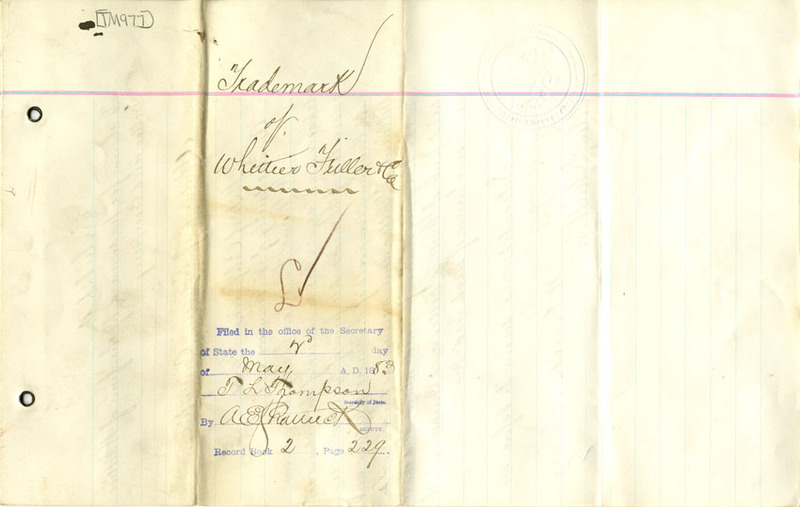 [TM977]
Trademark
of
Whittier Fuller & Co
Filed in the office of the Secretary
of State the 2d day
of May A. D. 1883
T L Thompson
Secretary of State.
By A E
DEPUTY.
Record Book 2, Page 229.